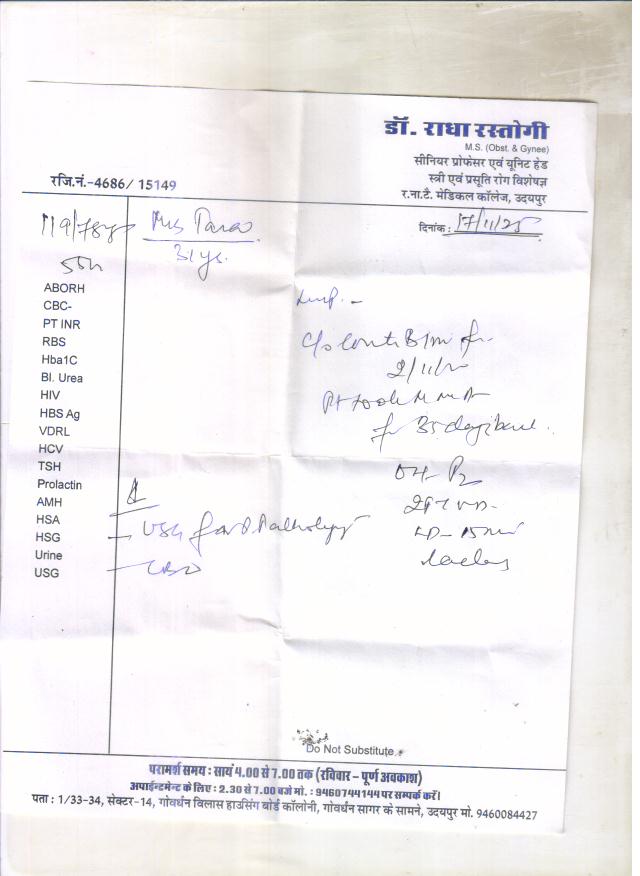 डॉ. राधा रस्तोगी
M.S. (Obst. & Gynee)
सीनियर प्रोफेसर एवं यूनिट हेड
स्त्री एवं प्रसूति रोग विशेषज्ञ
र.ना.टै. मेडिकल कॉलेज, उदयपुर
रजि.नं.-4686/ 15149
दिनांक : 17/11/25
Mrs
31 ys.
ABORH
CBC-
PT INR
RBS
Hba1C
Bl. Urea
HIV
HBS Ag
VDRL
HCV
TSH
Prolactin
AMH
HSA
HSG
Urine
USG
LMP -
2/11/25
for 35 days
OH- P2
USG for Pathology
CBC
Do Not Substitute
परामर्श समय : सायं 4.00 से 7.00 तक (रविवार - पूर्ण अवकाश)
अपाईन्टमेन्ट के लिए : 2.30 से 7.00 बजे मो. : 9460744144 पर सम्पर्क करें।
पता : 1/33-34, सेक्टर-14, गोवर्धन विलास हाउसिंग बोर्ड कॉलोनी, गोवर्धन सागर के सामने, उदयपुर मो. 9460084427